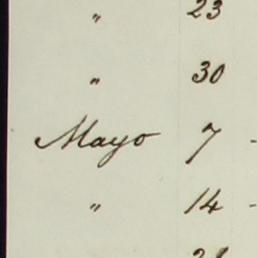 " 23
" 30
Mayo 7 -
" 14 -
21